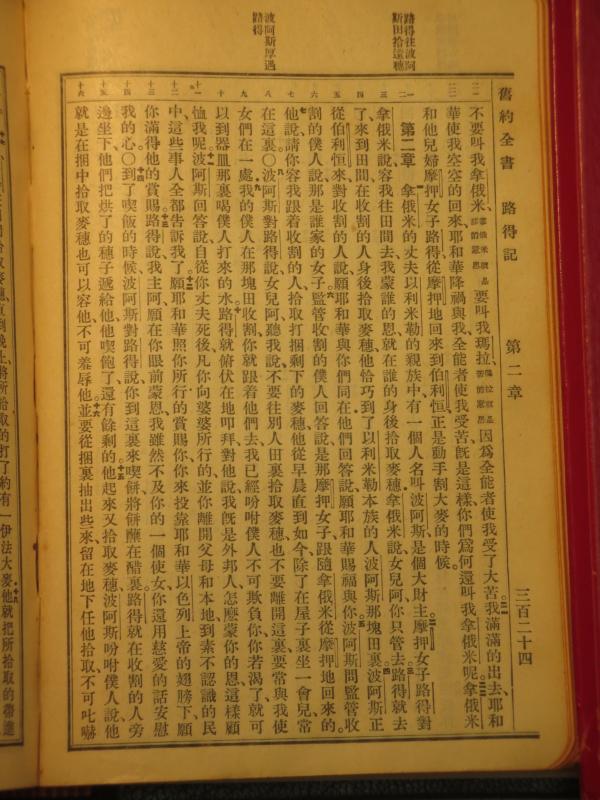 路得往波阿
斯田拾遺穗
波阿斯厚遇
路得
舊約全書 路得記 第二章 三百二十四
不要叫我拿俄米、要叫我瑪拉、因為全能者使我受了大苦。二一我滿滿的出去、耶和
華使我空空的回來、耶和華降禍與我、全能者使我受苦、既是這樣、你們為何還叫我拿俄米呢。二二拿俄米
和他兒婦摩押女子路得、從摩押地回來到伯利恒、正是動手割大麥的時候。
第二章 一拿俄米的丈夫以利米勒的親族中、有一個人名叫波阿斯、是個大財主。二摩押女子路得對
拿俄米說、容我往田間去、我蒙誰的恩、就在誰的身後拾取麥穗、拿俄米說、女兒阿、你只管去。三路得就去
了、來到田間、在收割的人身後拾取麥穗、他恰巧到了以利米勒本族的人波阿斯那塊田裏。四波阿斯正
從伯利恒來、對收割的人說、願耶和華與你們同在、他們回答說、願耶和華賜福與你。五波阿斯問監管收
割的僕人說、那是誰家的女子。六監管收割的僕人回答說、是那摩押女子、跟隨拿俄米從摩押地回來的。
七他說、請你容我跟着收割的人、拾取打捆剩下的麥穗、他從早晨直到如今、除了在屋子裏坐一會兒、常
在這裏。○八波阿斯對路得說、女兒阿、聽我說、不要往別人田裏拾取麥穗、也不要離開這裏、要常與我使
女們在一處。九我的僕人在那塊田收割、你就跟着他們去、我已經吩咐僕人不可欺負你、你若渴了、就可
以到器皿那裏喝僕人打來的水。十路得就俯伏在地叩拜、對他說、我既是外邦人、怎麽蒙你的恩、這樣顧
恤我呢。十一波阿斯回答說、自從你丈夫死後、凡你向婆婆所行的、並你離開父母和本地、到素不認識的民
中、這些事人全都告訴我了。十二願耶和華照你所行的賞賜你、你來投靠耶和華以色列上帝的翅膀下、願
你滿得他的賞賜。十三路得說、我主阿、願在你眼前蒙恩、我雖然不及你的一個使女、你還用慈愛的話安慰
我的心。○十四到了喫飯的時候、波阿斯對路得說、你到這裏來喫餅、將餅蘸在醋裏、路得就在收割的人旁
邊坐下、他們把烘了的穗子遞給他、他喫飽了、還有餘剩的。十五他起來又拾取麥穗、波阿斯吩咐僕人說、他
就是在捆中拾取麥穗、也可以容他、不可羞辱他。十六並要從捆裏抽出些來、留在地下任他拾取、不可叱嚇